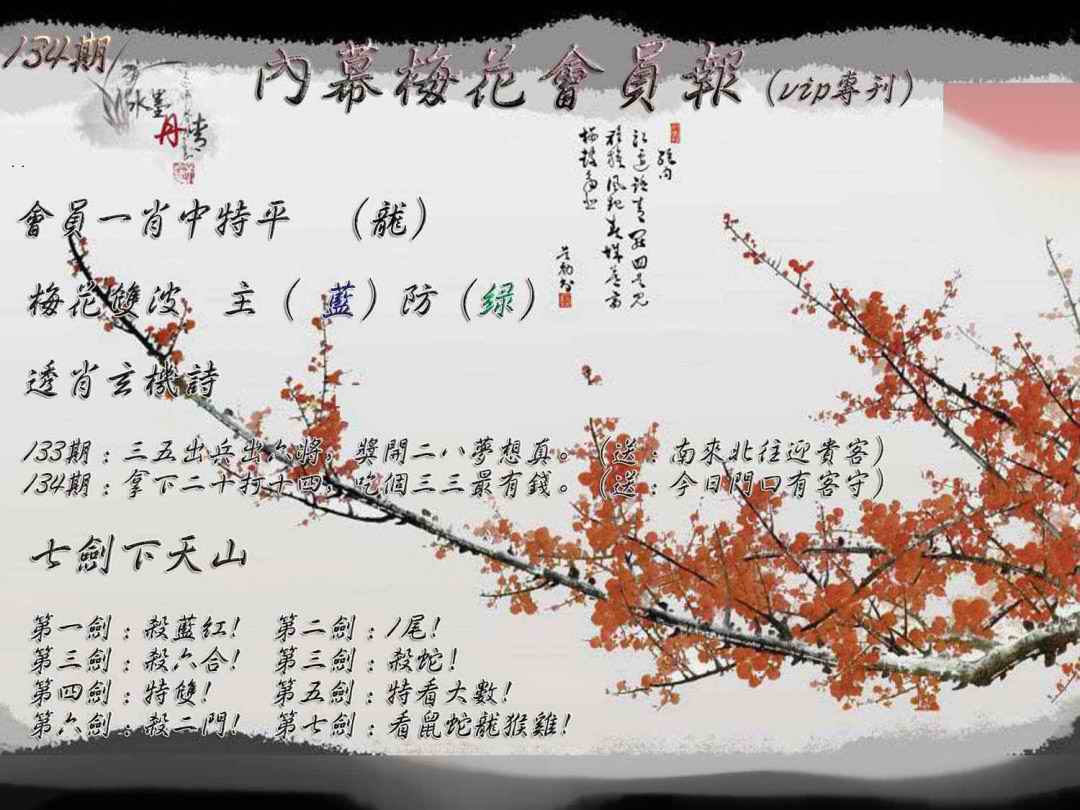 134期
內幕梅花會員報(vip專刊)
水墨
丹青
會員一肖中特平 (龍)
梅花雙波 主(藍)防(绿)
透肖玄機詩
133期:三五出兵出六將,獎開二八夢想真。(送:南來北往迎貴客)
134期:拿下二十打十四,吃個三三最有錢。(送:今日門口有客守)
七劍下天山
第一劍:殺藍紅! 第二劍:1尾!
第三劍:殺六合! 第三劍:殺蛇!
第四劍:特雙! 第五劍:特看大數!
第六劍:殺二門! 第七劍:看鼠蛇龍猴雞!